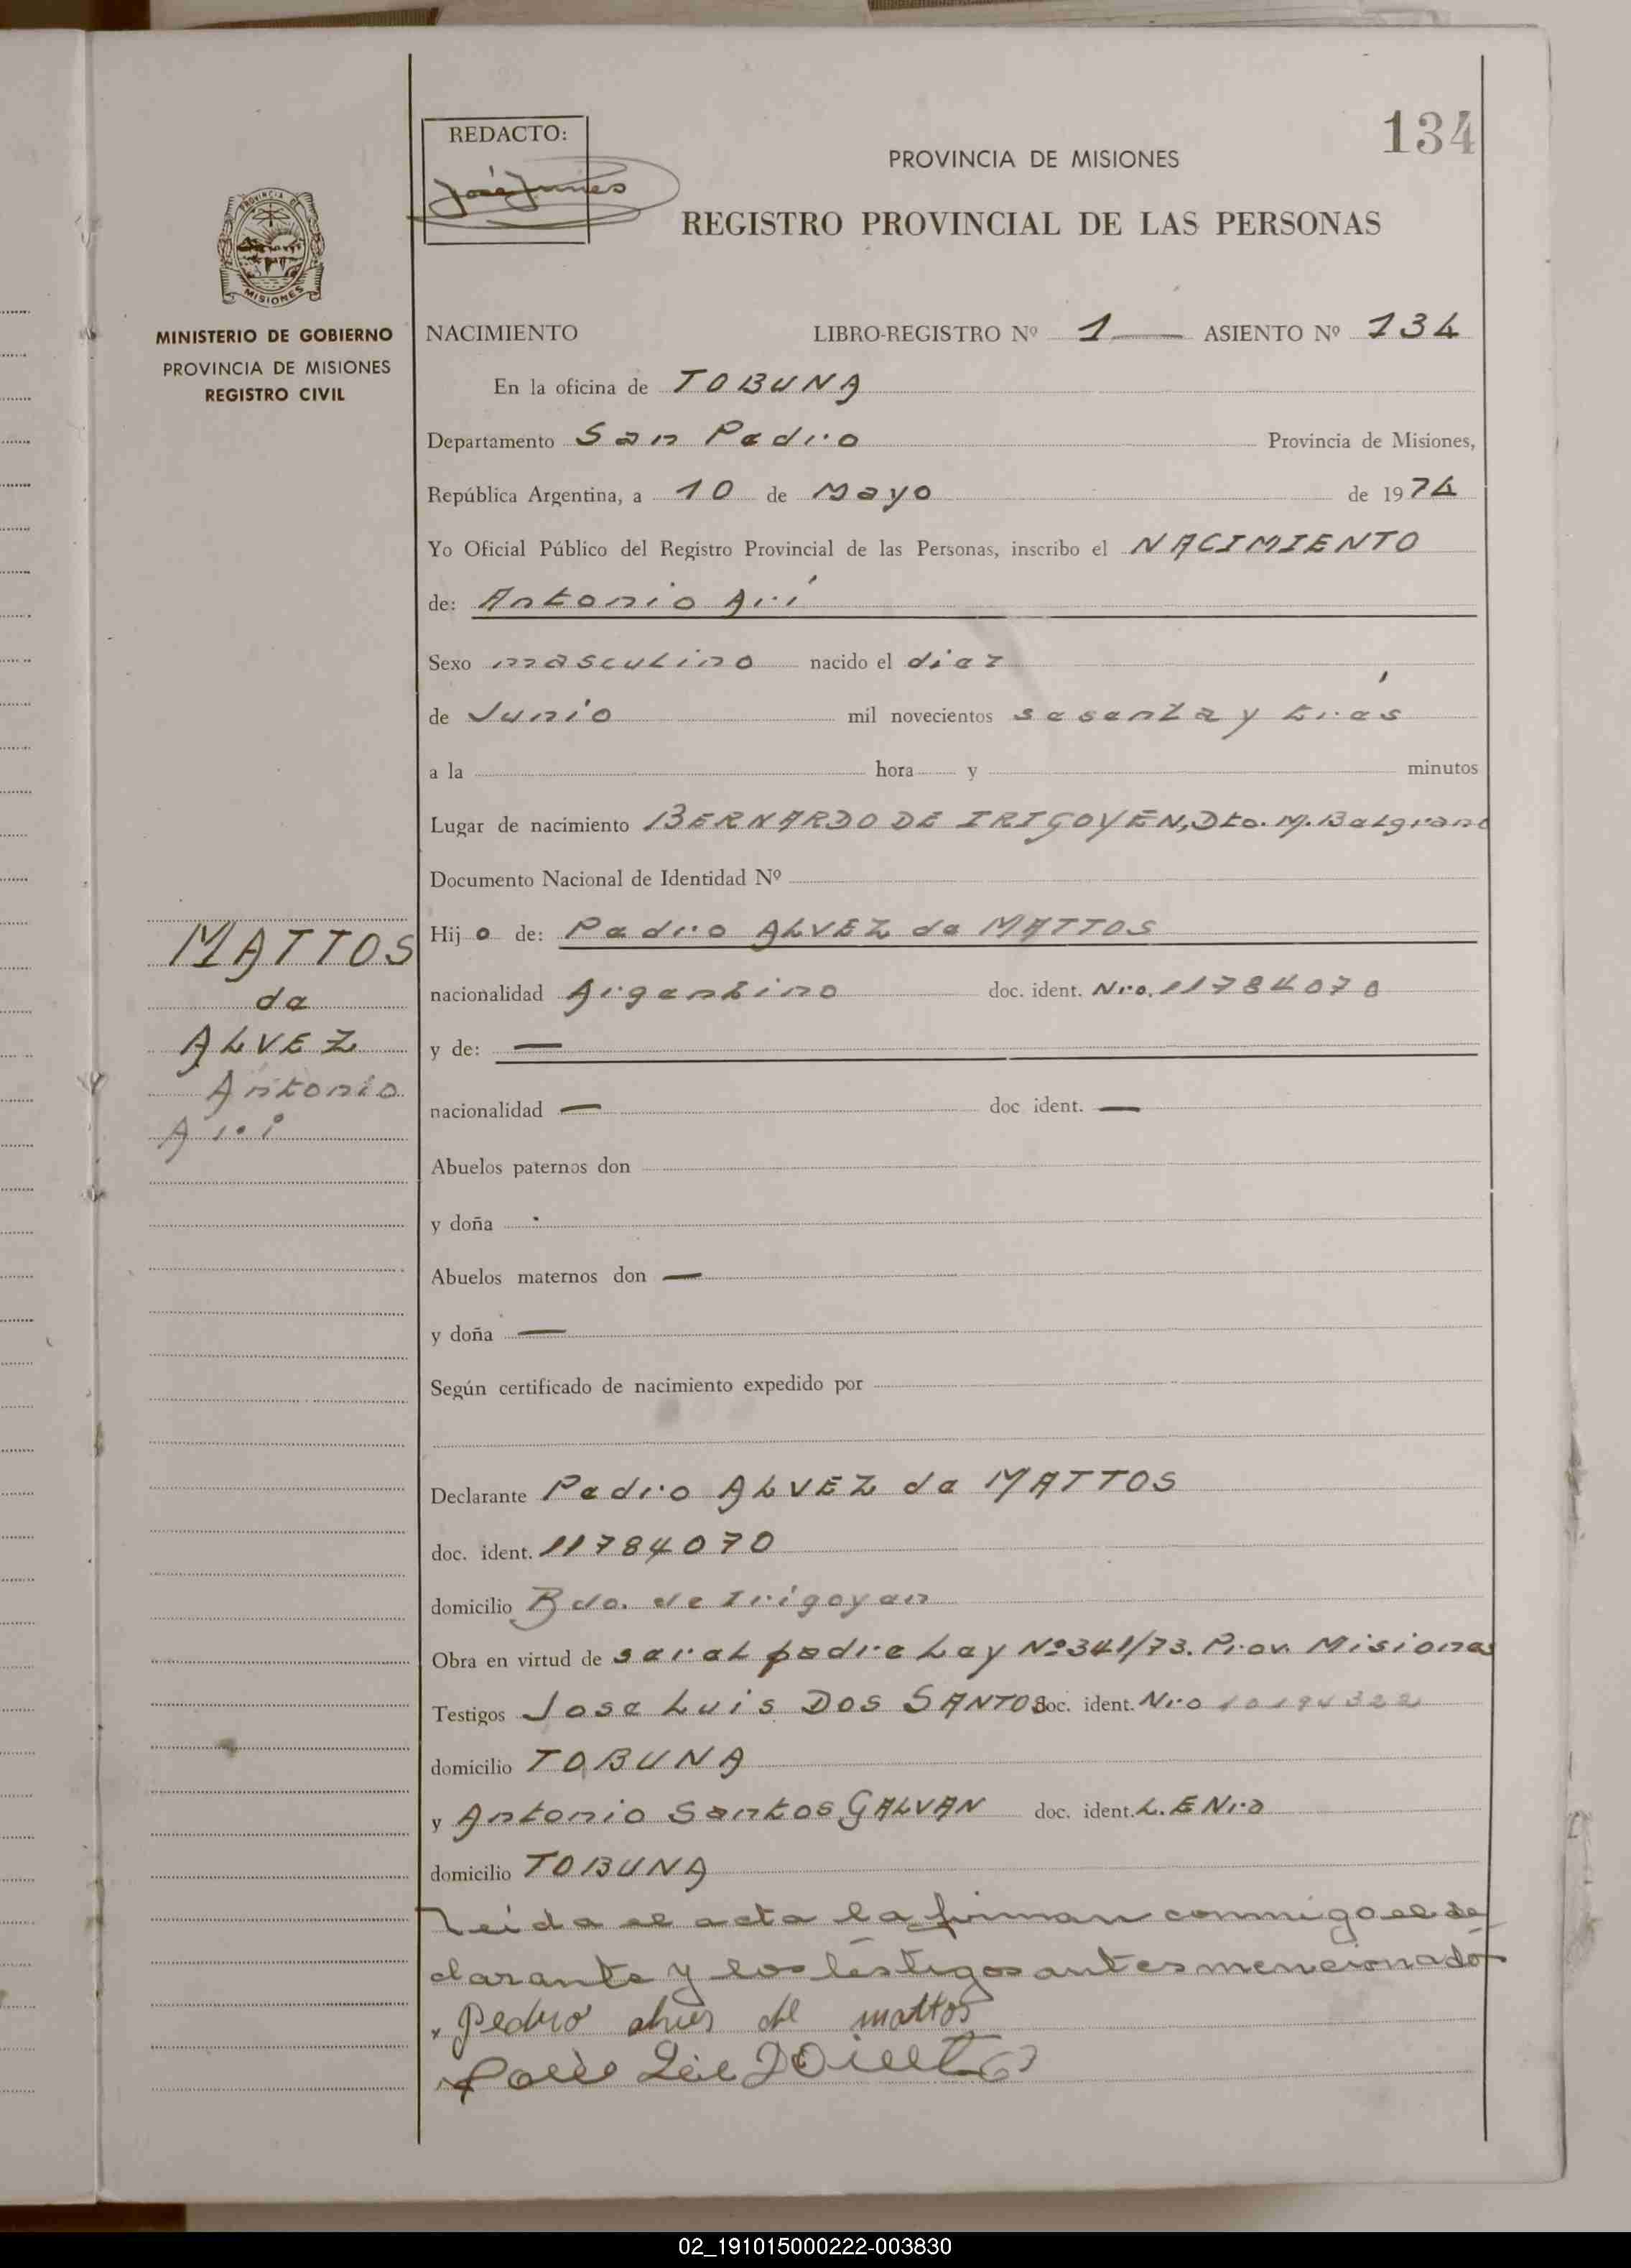 134
REDACTO:
PROVINCIA DE MISIONES
REGISTRO PROVINCIAL DE LAS PERSONAS
PROVINCIA DE
MISIONES
MINISTERIO DE GOBIERNO
PROVINCIA DE MISIONES
REGISTRO CIVIL
NACIMIENTO LIBRO-REGISTRO Nº 1 — ASIENTO Nº 134
En la oficina de TOBUNA
Departamento San Pedro Provincia de Misiones,
República Argentina, a 10 de Mayo de 1974
Yo Oficial Público del Registro Provincial de las Personas, inscribo el NACIMIENTO
de: Antonio Arí
Sexo masculino nacido el diez
de Junio mil novecientos sesenta y trés
a la hora y minutos
Lugar de nacimiento BERNARDO DE IRIGOYEN, Dto. M. Belgrano
Documento Nacional de Identidad Nº
Hijo de: Pedro ALVEZ de MATTOS
nacionalidad Argentino doc. ident. Nro. 11784070
y de: —
nacionalidad — doc ident. —
Abuelos paternos don
y doña
Abuelos maternos don —
y doña —
Según certificado de nacimiento expedido por
MATTOS
de
ALVEZ
Antonio
Ari
Declarante Pedro ALVEZ de MATTOS
doc. ident. 11784070
domicilio Bdo. de Irigoyen
Obra en virtud de ser el padre Ley Nº 341/73. Prov. Misiones
Testigos Jose Luis DOS SANTOS doc. ident. Nro 10194322
domicilio TOBUNA
y Antonio Santos GALVAN doc. ident. L.E Nro
domicilio TOBUNA
Leida el acta la firman conmigo el de
clarante y los testigos antes mencionados
Pedro alves de mattos
02_191015000222-003830